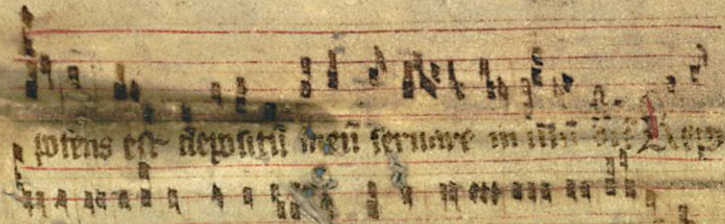 potens est depositū meū seruare in illū diē